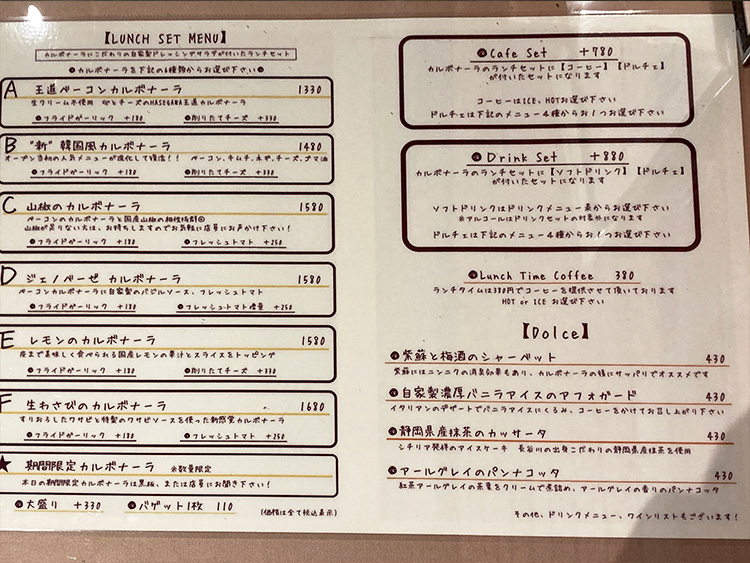 【LUNCH SET MENU】
カルボナーラにこだわりの自家製ドレッシングサラダが付いたランチセット
●カルボナーラを下記の6種類からお選び下さい●
A 王道ベーコンカルボナーラ 1330
生クリーム不使用 卵とチーズのHASEGAWA王道カルボナーラ
●フライドガーリック +180 ●削りたてチーズ +330
B "新"韓国風カルボナーラ 1480
オープン当初の人気メニューが進化して復活!! ベーコン、キムチ、ネギ、チーズ、ゴマ油
●フライドガーリック +180 ●削りたてチーズ +330
C 山椒のカルボナーラ 1580
ベーコンのカルボナーラと国産山椒の相性抜群◎
山椒が足りない方は、お持ちしますのでお気軽に店員にお声かけ下さい!
●フライドガーリック +180 ●フレッシュトマト +250
D ジェノベーゼ カルボナーラ 1580
ベーコンカルボナーラに自家製のバジルソース、フレッシュトマト
●フライドガーリック +180 ●フレッシュトマト増量 +250
E レモンのカルボナーラ 1580
皮まで美味しく食べられる国産レモンの果汁とスライスをトッピング
●フライドガーリック +180 ●削りたてチーズ +330
F 生わさびのカルボナーラ 1680
すりおろしたワサビと特製のワサビソースを使った新感覚カルボナーラ
●フライドガーリック +180 ●フレッシュトマト +250
★ 期間限定カルボナーラ ※数量限定
本日の期間限定カルボナーラは黒板、または店員にお聞き下さい!
●大盛り +330 ●バゲット1枚 110
(価格は全て税込表示)
●Cafe Set +780
カルボナーラのランチセットに【コーヒー】【ドルチェ】
が付いたセットになります
コーヒーはICE、HOTお選び下さい
ドルチェは下記のメニュー4種からお1つお選び下さい
●Drink Set +880
カルボナーラのランチセットに【ソフトドリンク】【ドルチェ】
が付いたセットになります
ソフトドリンクはドリンクメニュー表からお選び下さい
※アルコールはドリンクセットの対象外になります
ドルチェは下記のメニュー4種からお1つお選び下さい
●Lunch Time Coffee 380
ランチタイムは380円でコーヒーを提供させて頂いております
HOT or ICE お選び下さい
【Dolce】
●紫蘇と梅酒のシャーベット 430
紫蘇にはニンニクの消臭効果もあり、カルボナーラの後にサッパリでオススメです
●自家製濃厚バニラアイスのアフォガード 430
イタリアンのデザートでバニラアイスにくるみ、コーヒーをかけてお召し上がり下さい
●静岡県産抹茶のカッサータ 430
シチリア発祥のアイスケーキ 長谷川の出身こだわりの静岡県産抹茶を使用
●アールグレイのパンナコッタ 430
紅茶アールグレイの茶葉をクリームで煮詰め、アールグレイの香りのパンナコッタ
その他、ドリンクメニュー、ワインリストもございます!